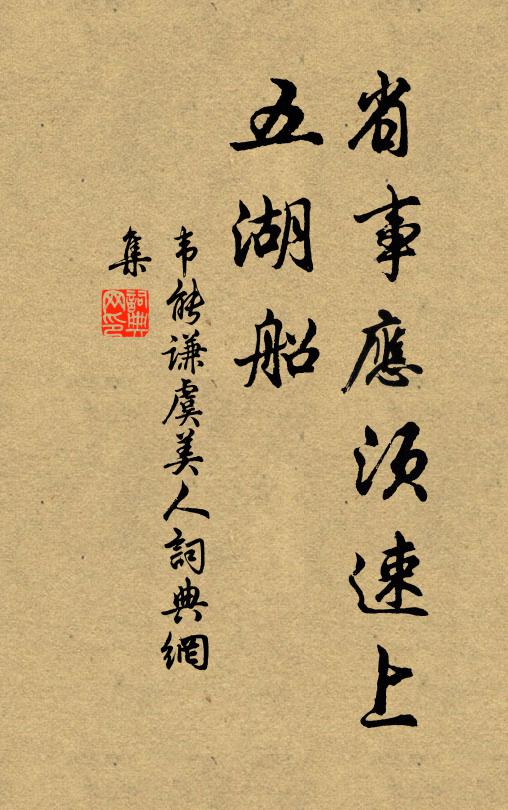 省事應須速上
五湖船
韦能谦虞美人詞典網
集
詞典
网印